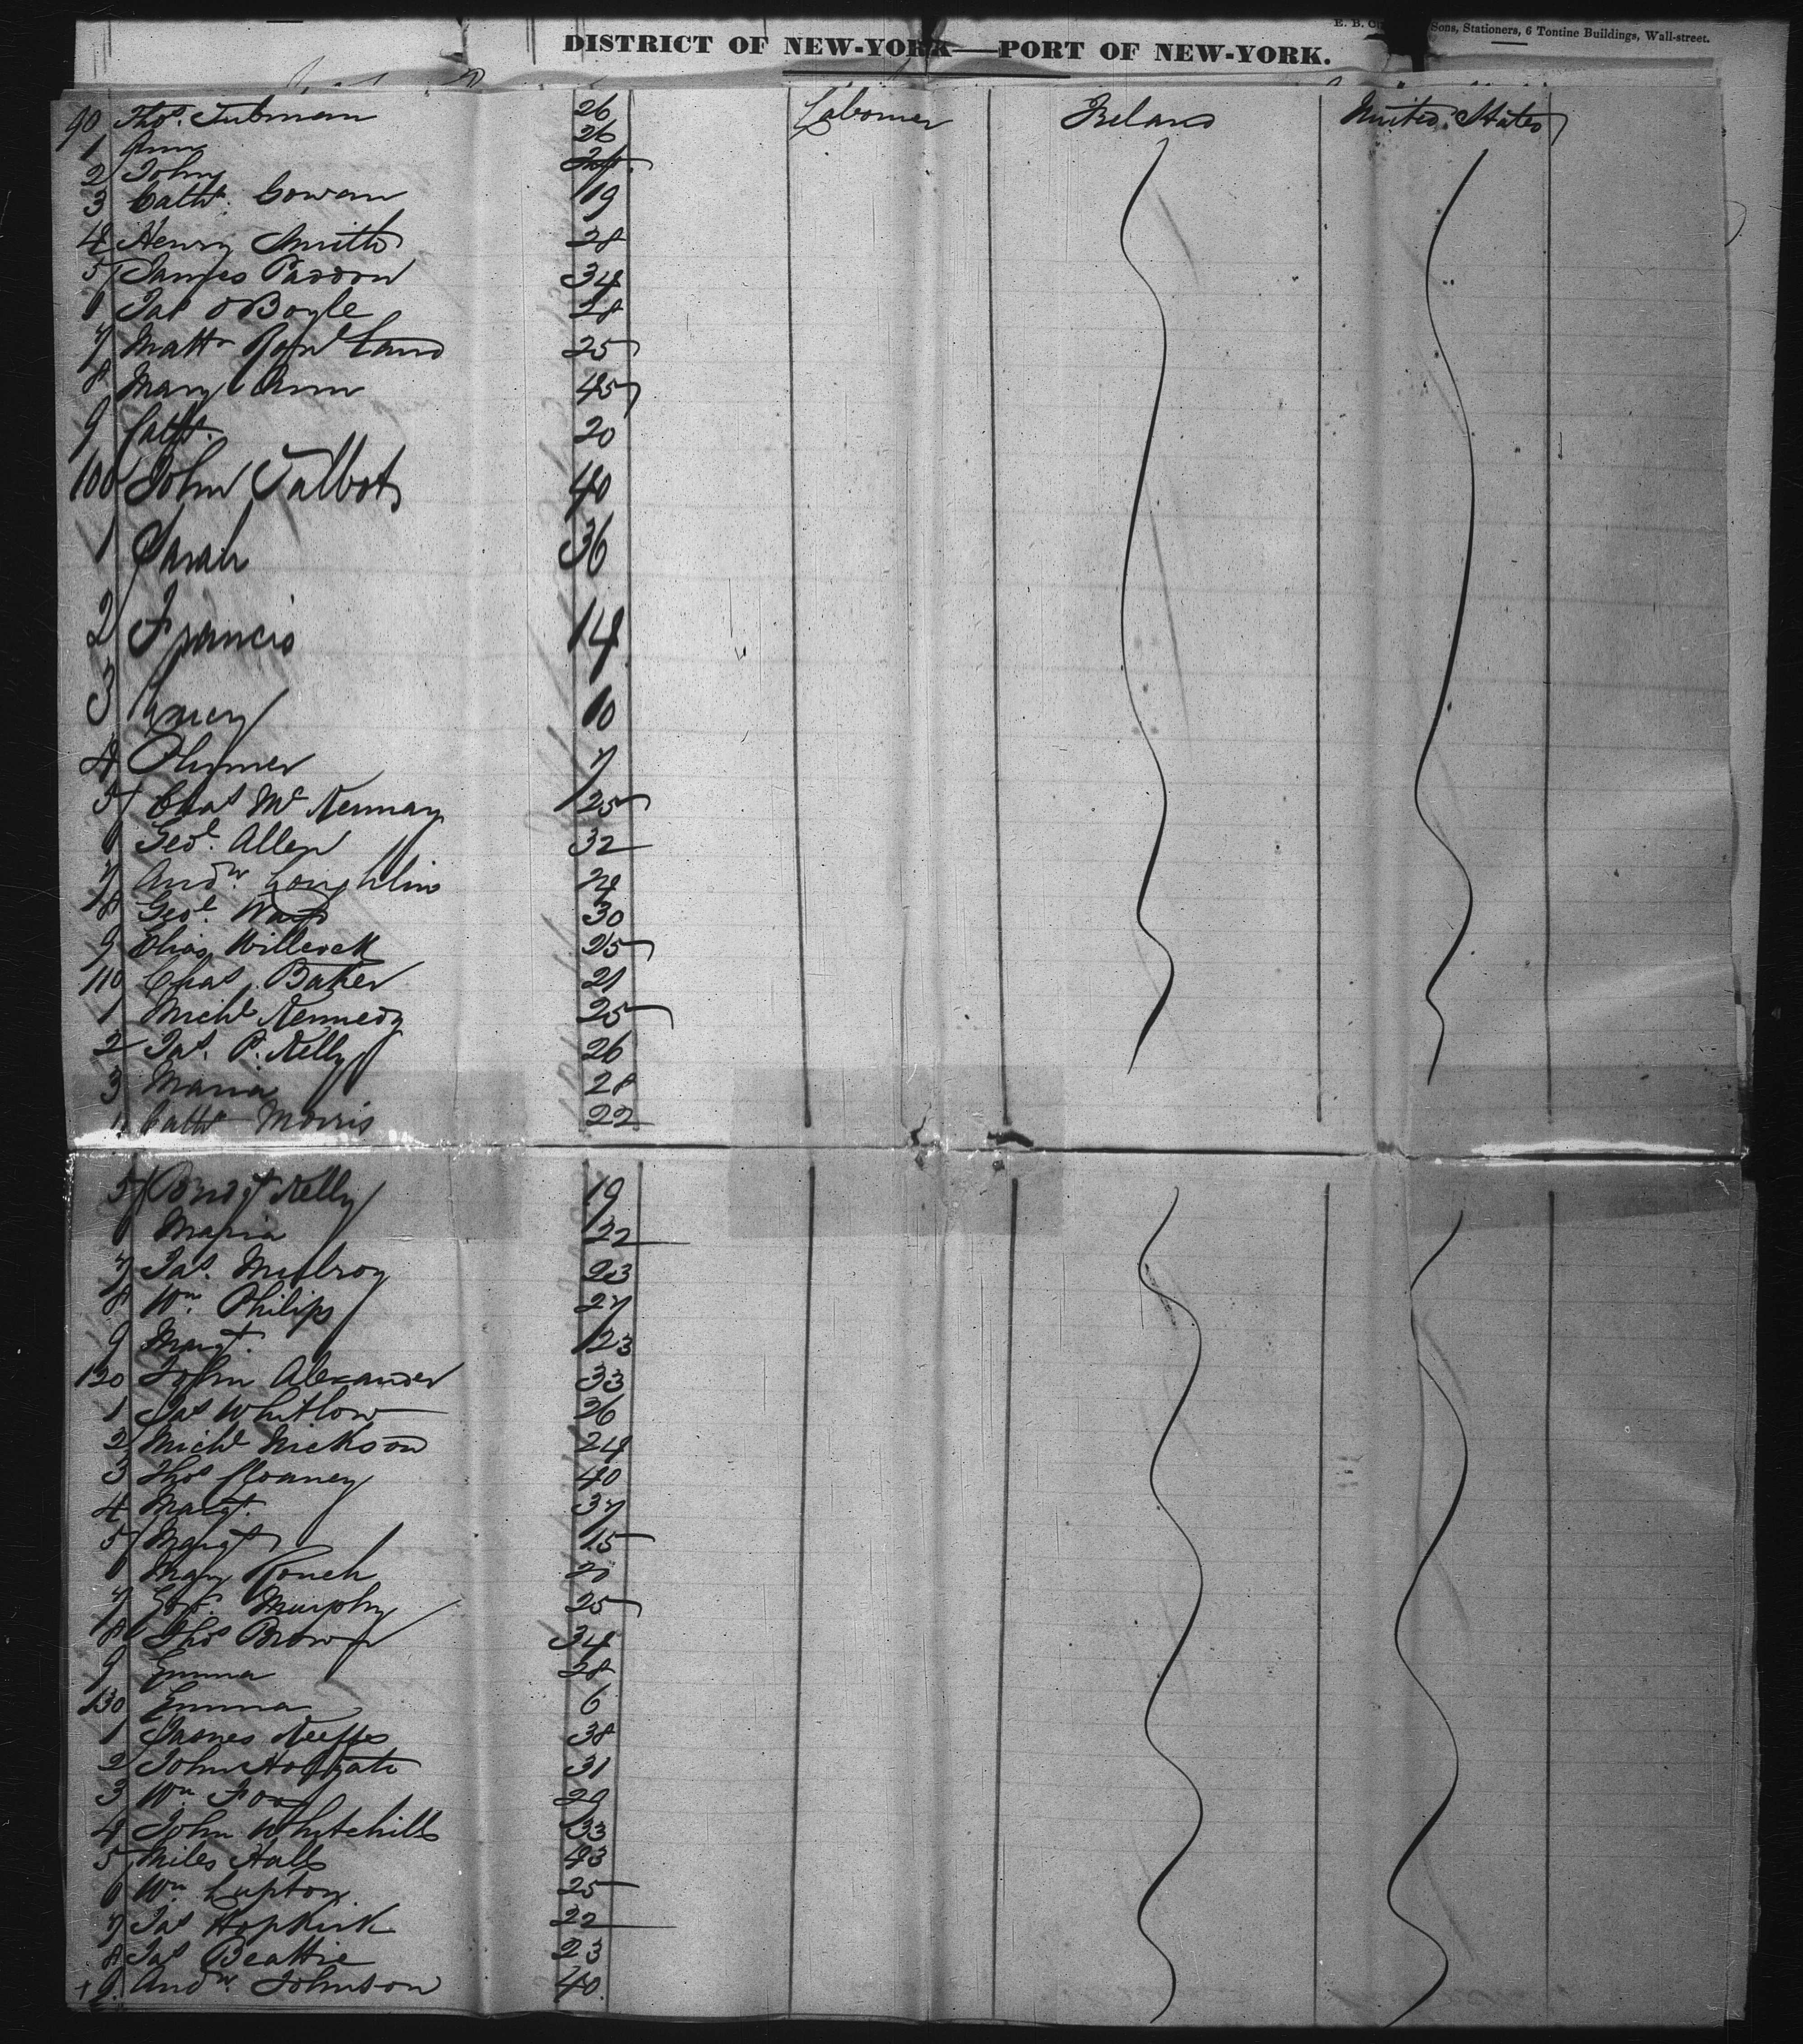 Sons, Stationers, 6 Tontine Buildings, Wall-street.
DISTRICT OF NEW-YORK—PORT OF NEW-YORK.
90 Thos. Tubman 26 Labourer Ireland United States
1 Ann 26
2 John Inft.
3 Cathe. Cowan 19
4 Henry Smith 28
5 James 34
6 Jas O Boyle 28
7 Mattw Rowland 25
8 Mary Ann 45
9 Cathe. 20
100 John Talbot 40
1 Sarah 36
2 Francis 14
3 Lucy 10
4 7
5 Chas Mc Kennay 25
6 Geoe. Allen 32
7 Andw. Loughlin 24
8 Geoe. 30
9 Elias Willcock 25
110 Chas. Baker 21
1 Michl Kennedy 25
2 Jas. P. Kelly 26
3 Maria 28
4 Cathe Morris 22
5 Bridgt Kelly 19
6 Maria 22
7 Jas. Mulroy 23
8 Wm. Philips 27
9 Margt. 23
120 John Alexander 33
1 Jas Whitlow 36
2 Michl Nickson 24
3 Thos 40
4 Margt. 37
5 Margt 15
6 Mary Roach 20
7 Murphy 25
8 Thos Brown 34
9 Emma 28
130 Emma 6
1 James 38
2 John Holgate 31
3 Wm Fox 29
4 John Whitehills 33
5 Miles Halls 43
6 Wm. Lupton 25
7 Jas Hopkirk 22
8 Jas Beattie 23
+ 9 Andw. Johnson 40